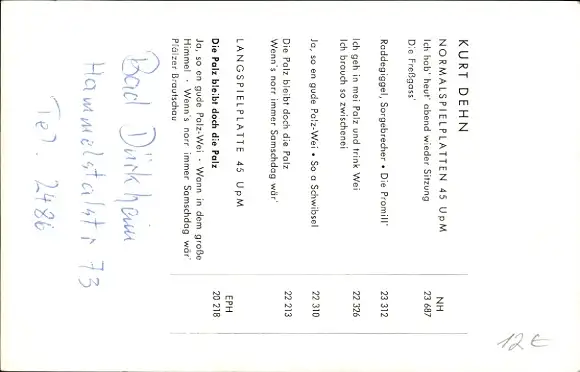 KURT DEHN
NORMALSPIELPLATTEN 45 UpM NH
Ich hab' heut' abend wieder Sitzung 23 687
Die Freßgass'
Raddegiggel, Sorgebrecher • Die Promill' 23 312
Ich geh in mei Palz und trink Wei 22 326
Ich brauch so zwischenei
Ja, so en gude Palz-Wei • So a Schwibsel 22 310
Die Palz bleibt doch die Palz 22 213
Wenn's norr immer Samschdag wär'
LANGSPIELPLATTE 45 UpM EPH
Die Palz bleibt doch die Palz 20 218
Ja, so en gude Palz-Wei • Wann in dem große
Himmel • Wenn's norr immer Samschdag wär'
Pälzer Brautschau
Bad Dürkheim
Hammelstalstr 73
Tel. 2486
12€